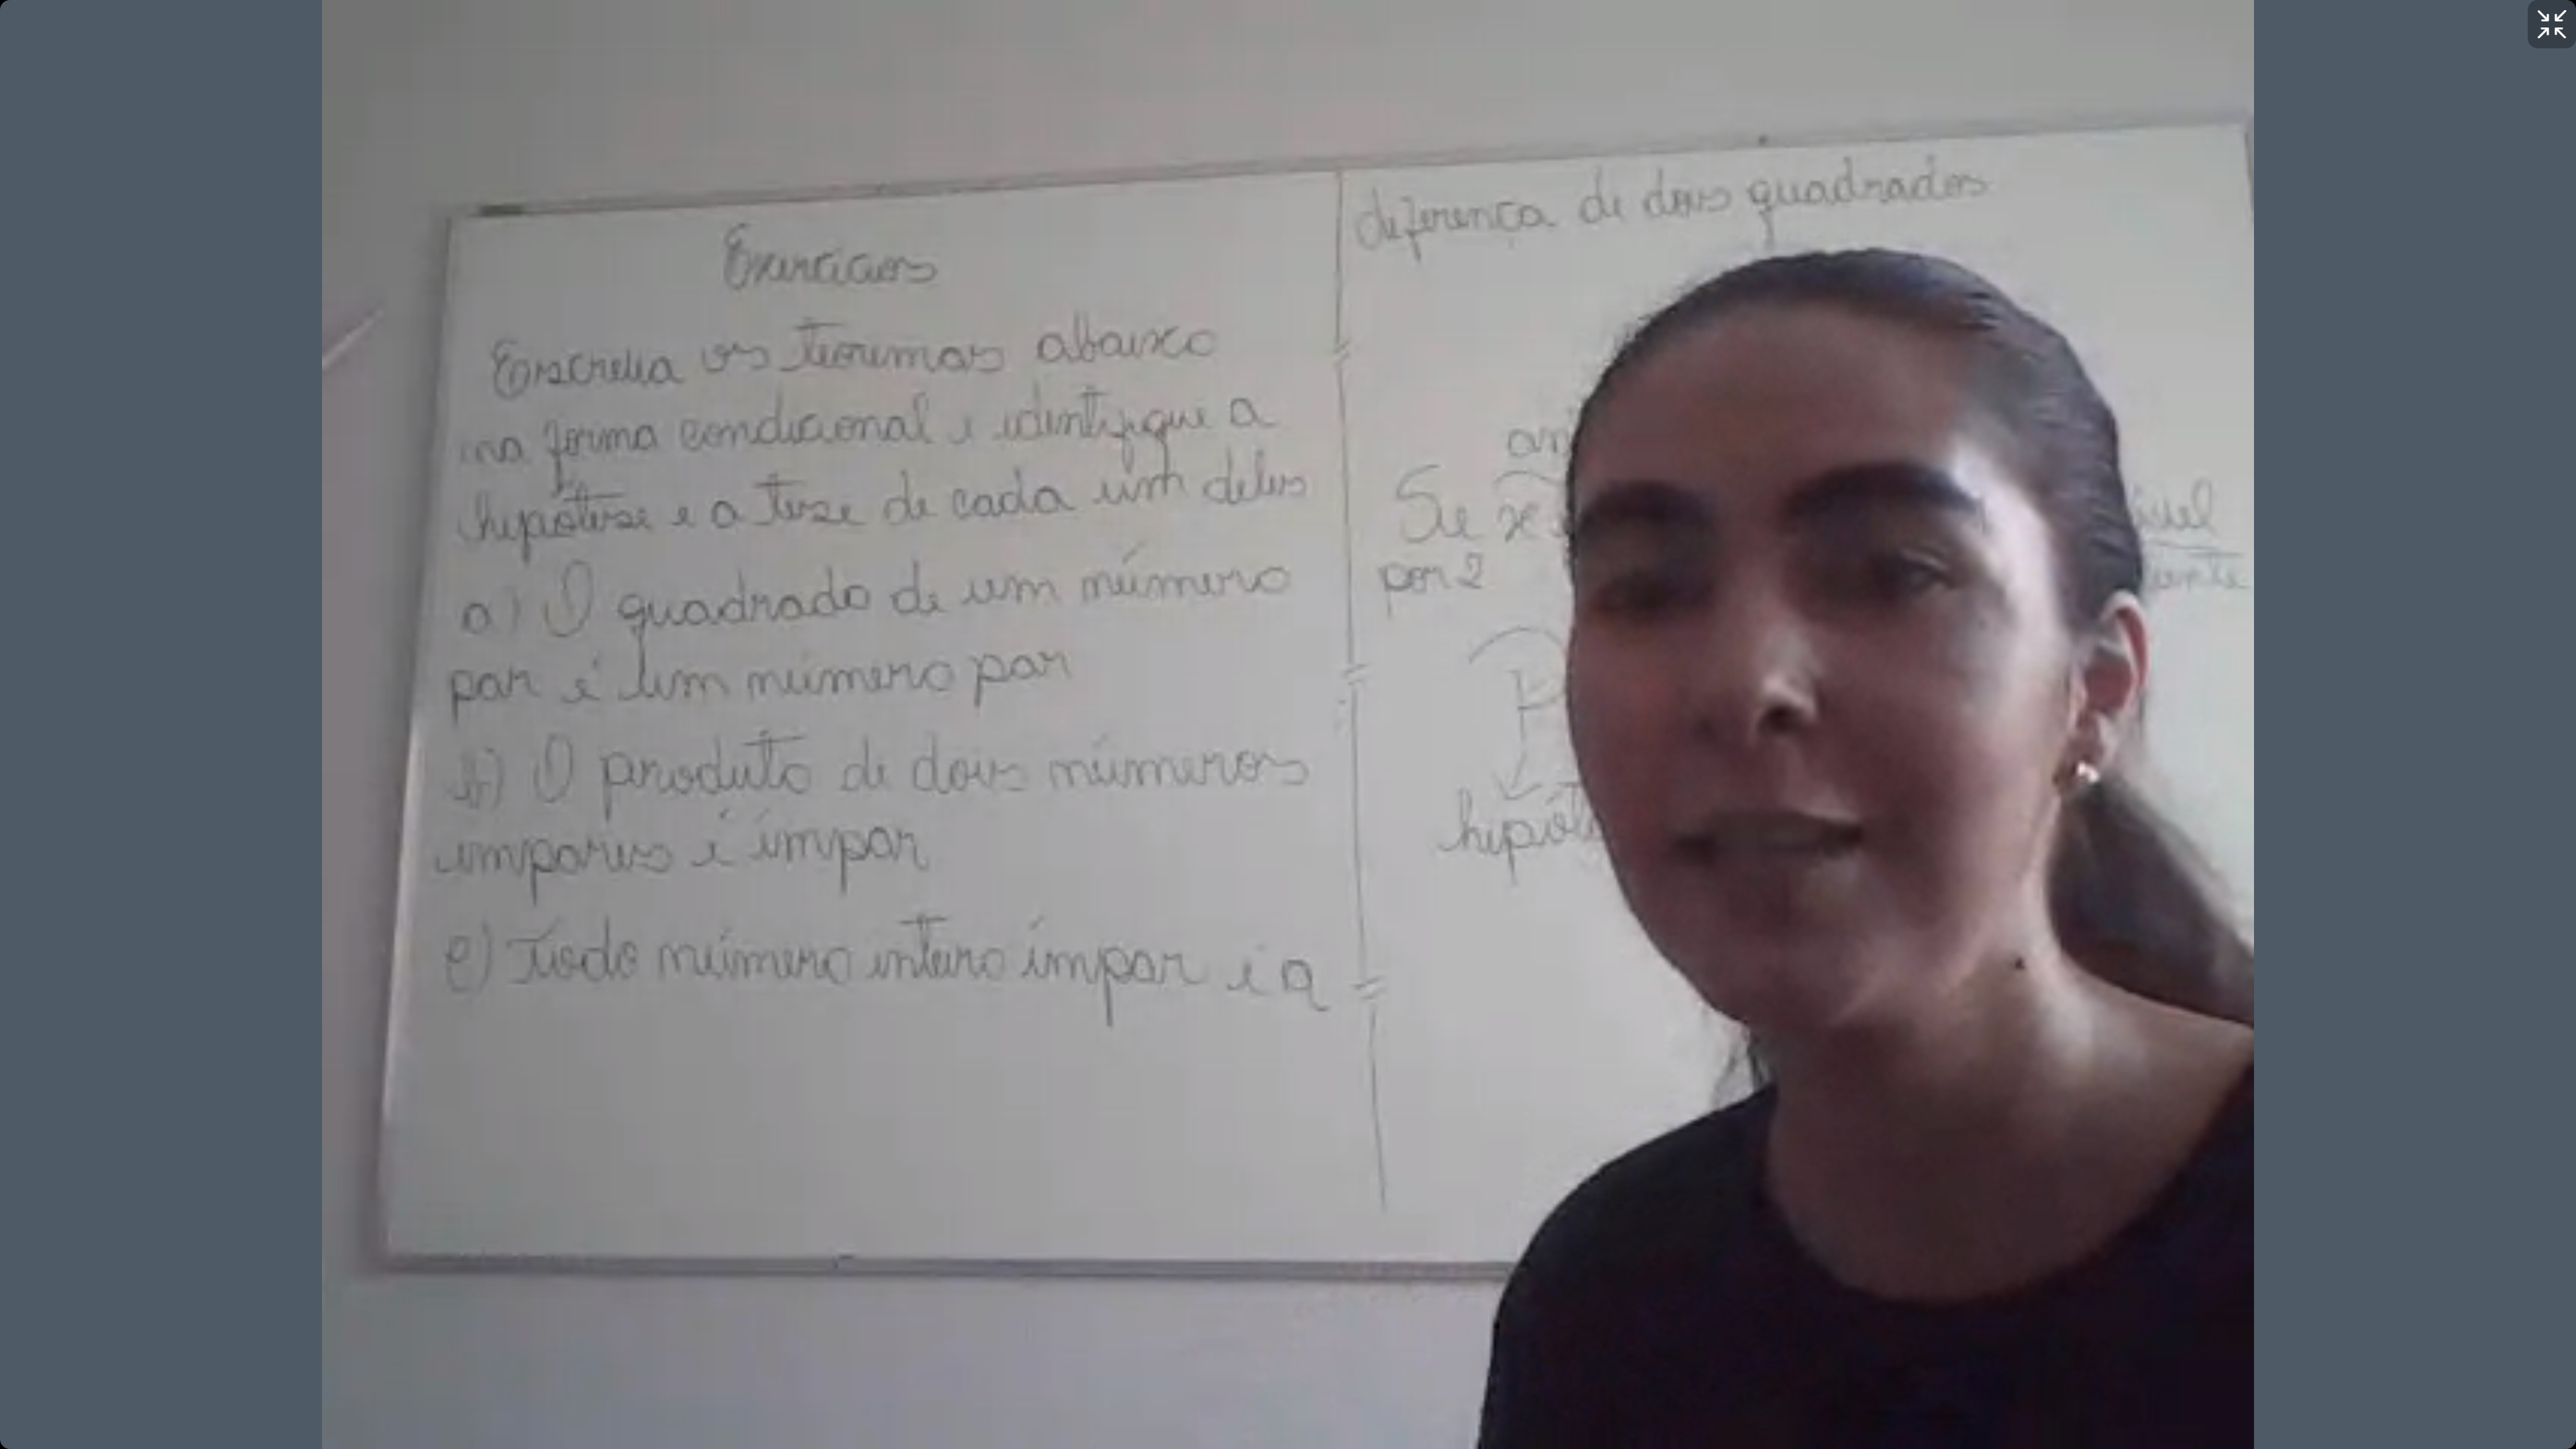 Exercícios
Escreva os teoremas abaixo
na forma condicional e identifique a
hipótese e a tese de cada um deles
a) O quadrado de um número
par é um número par
b) O produto de dois números
impares é ímpar
c) Todo número inteiro ímpar é a
diferença de dois quadrados
an
Se x
por 2
P
hipót